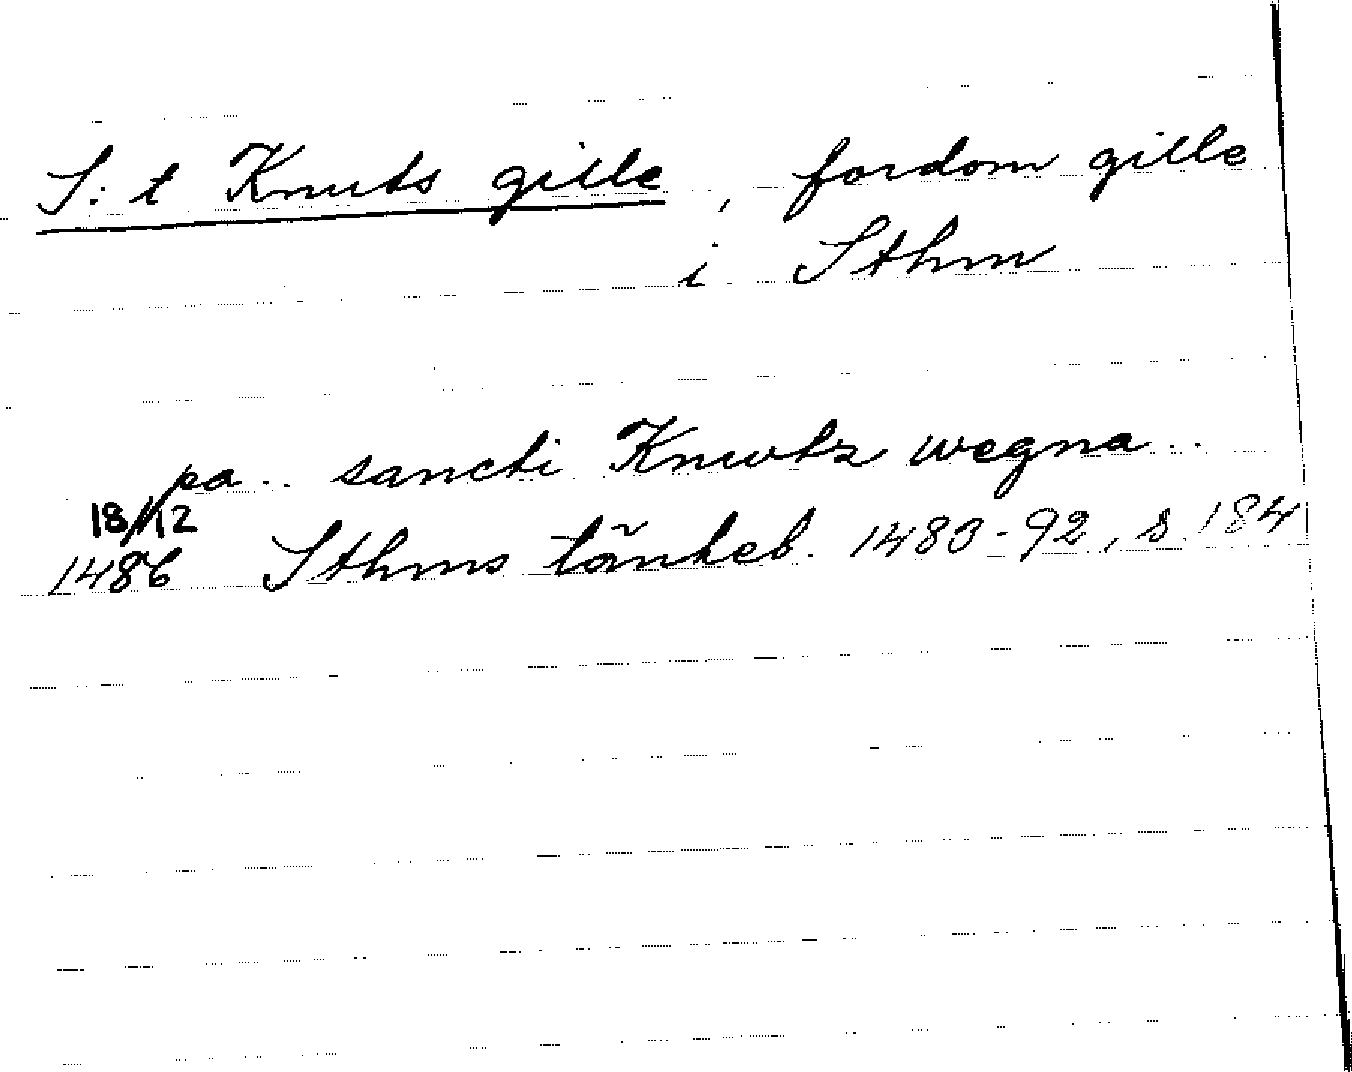 S:t Knuts gille, fordom gille
i Sthm
pa.. sancti Knwtz wegna..
18/12
1486 Sthms tänkeb. 1483-92, s. 184